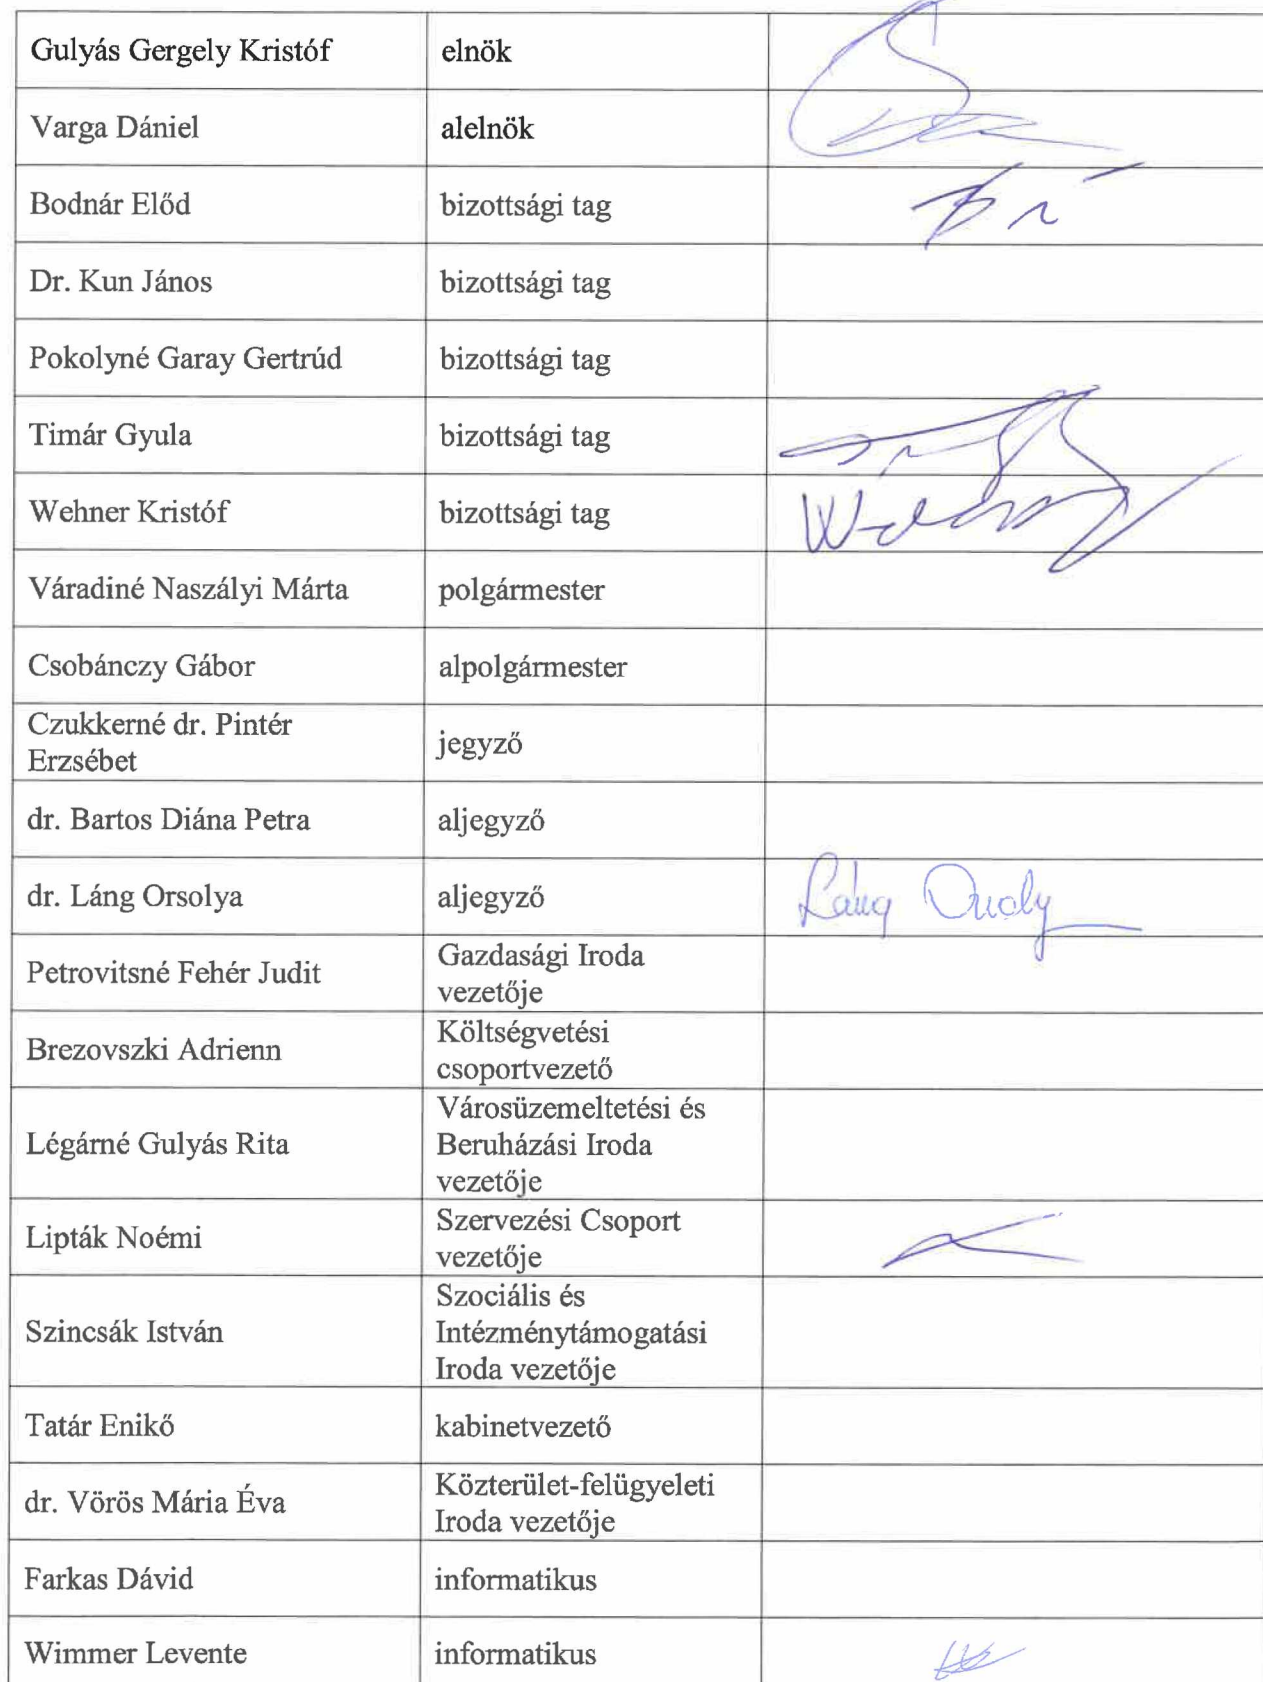 Gulyás Gergely Kristóf elnök
Varga Dániel alelnök
Bodnár Előd bizottsági tag
Dr. Kun János bizottsági tag
Pokolyné Garay Gertrúd bizottsági tag
Timár Gyula bizottsági tag
Wehner Kristóf bizottsági tag
Váradiné Naszályi Márta polgármester
Csobánczy Gábor alpolgármester
Czukkerné dr. Pintér
Erzsébet
jegyző
dr. Bartos Diána Petra aljegyző
dr. Láng Orsolya aljegyző Láng
Petrovitsné Fehér Judit
Gazdasági Iroda
vezetője
Brezovszki Adrienn
Költségvetési
csoportvezető
Légárné Gulyás Rita
Városüzemeltetési és
Beruházási Iroda
vezetője
Lipták Noémi
Szervezési Csoport
vezetője
Szincsák István
Szociális és
Intézménytámogatási
Iroda vezetője
Tatár Enikő kabinetvezető
dr. Vörös Mária Éva
Közterület-felügyeleti
Iroda vezetője
Farkas Dávid informatikus
Wimmer Levente informatikus